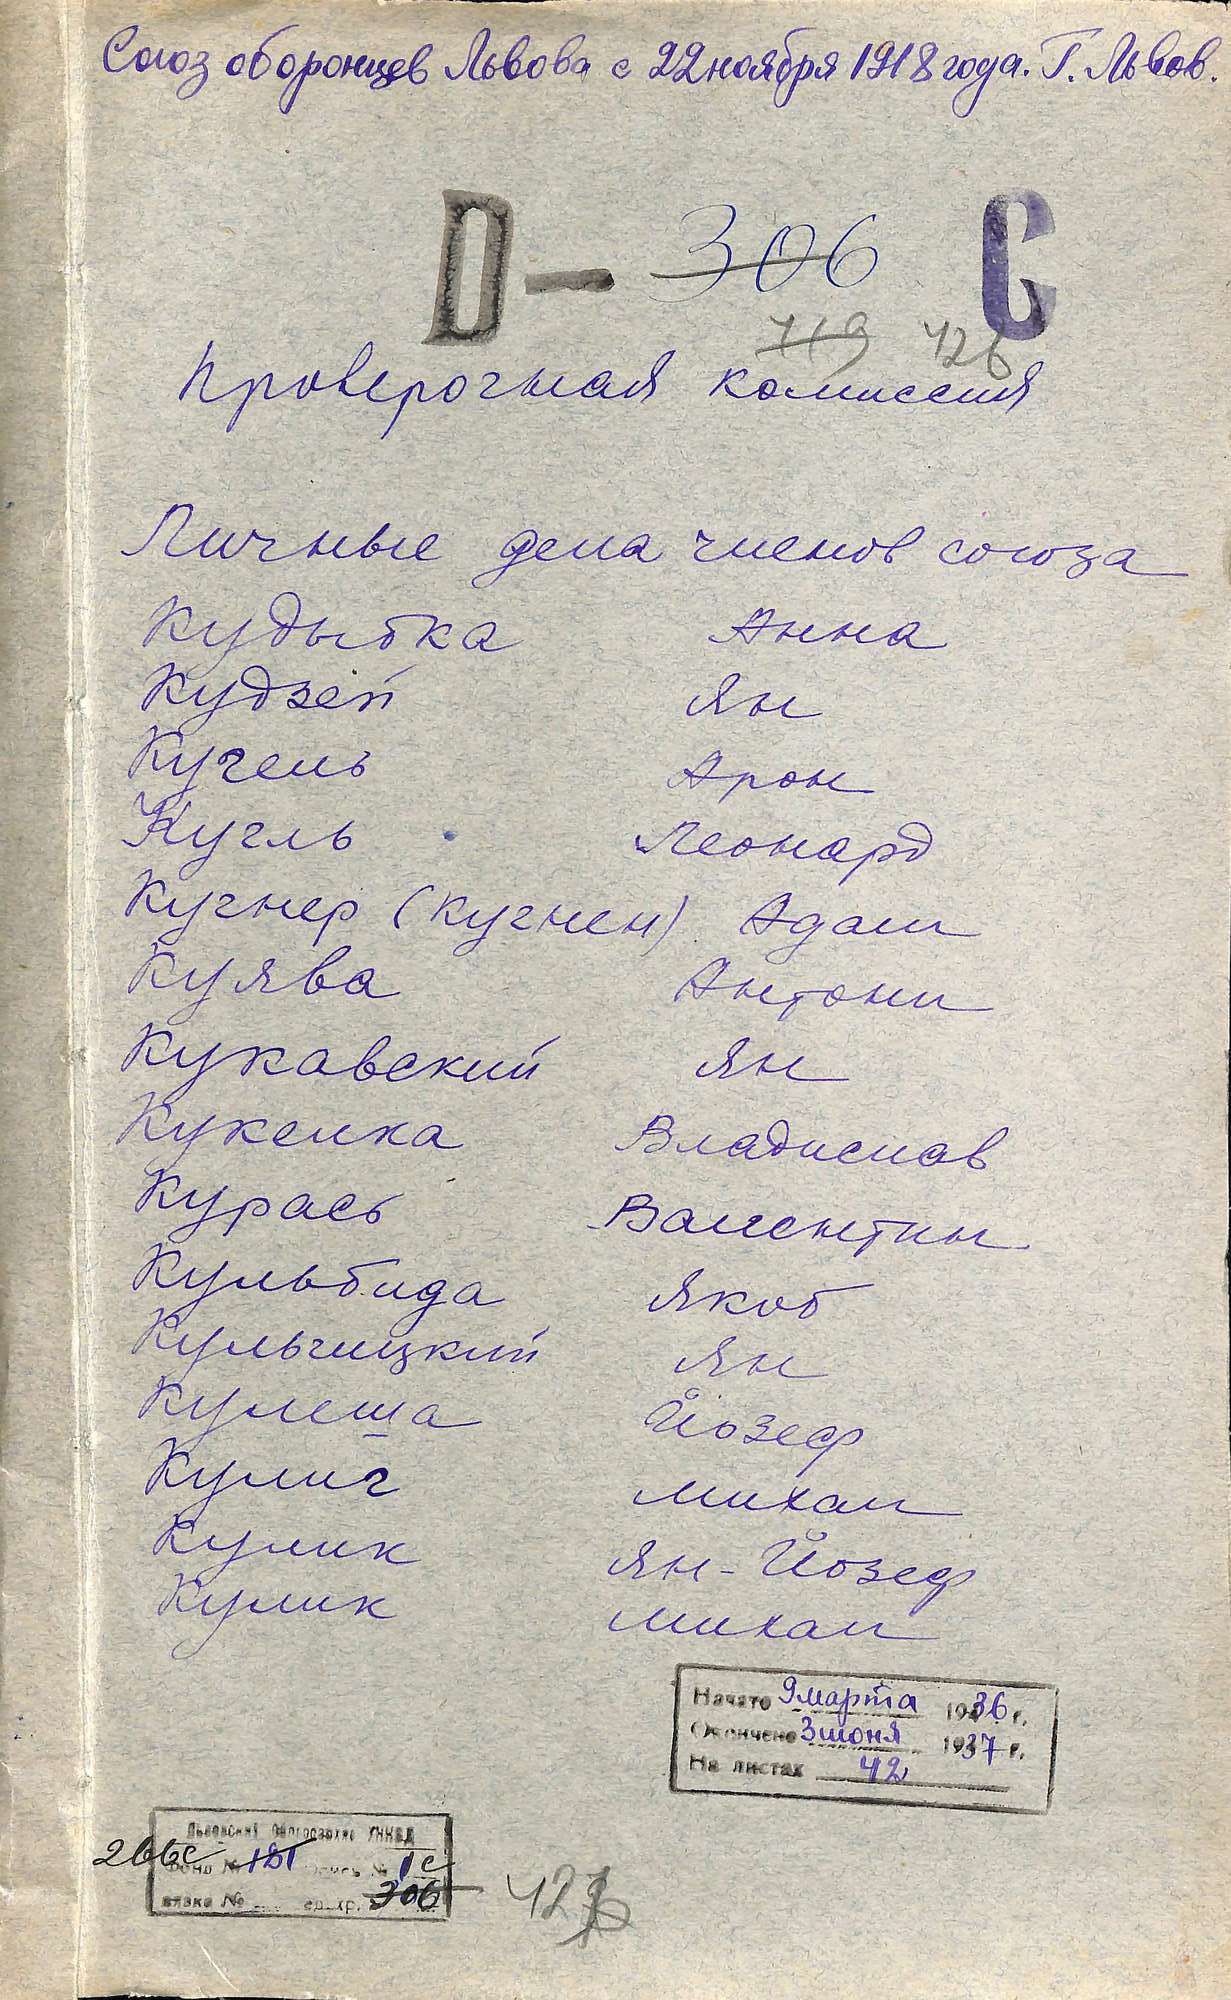 Союз оборонцев Львова с 22 ноября 1918 года. Г. Львов.
D — 306 C
719 426
Проверочная комиссия
Личные дела членов союза
Кудыбка Анна
Кудзей Ян
Кугель Арон
Кугль Леонард
Кугнер (Кугнен) Адам
Куява Антони
Кукавский Ян
Кукелка Владислав
Курась Валентин
Кульбида Якоб
Кульчицкий Ян
Кулеша Йозеф
Кулиг Михал
Кулик Ян-Йозеф
Кулик Михал
Начато 9 марта 1936 г.
Окончено 3 июня 1937 г.
На листах 42
Львовский Облгосархив УНКВД
266с Фонд № 181 Опись № 1с
вязка № ед. хр. 306